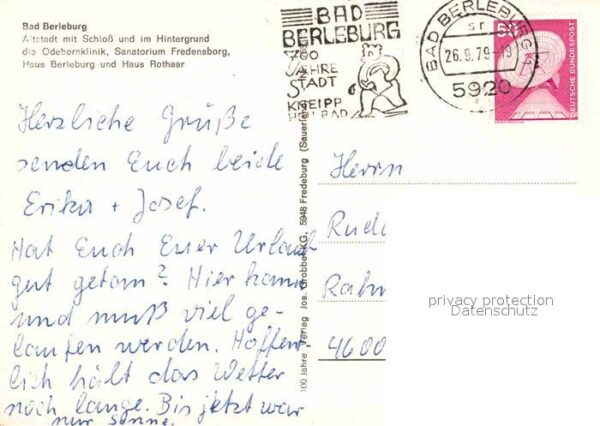 Bad Berleburg
Altstadt mit Schloß und im Hintergrund
die Odebornklinik, Sanatorium Fredensborg,
Haus Berleburg und Haus Rothaar
Herzliche Grüße
senden Euch beide
Erika + Josef.
Hat Euch Euer Urlaub
gut getan? Hier kann
und muß viel ge-
laufen werden. Hoffent-
lich hält das Wetter
noch lange. Bis jetzt war
nur Sonne.
BAD
BERLEBURG
700
JAHRE
STADT
KNEIPP
HEILBAD
BAD BERLEBURG 1
sr
26.9.79-19
5920
50
DEUTSCHE BUNDESPOST
100 Jahre Verlag Jos. Grobbel KG, 5948 Fredeburg (Sauerland)
Herrn
4600
privacy protection
Datenschutz